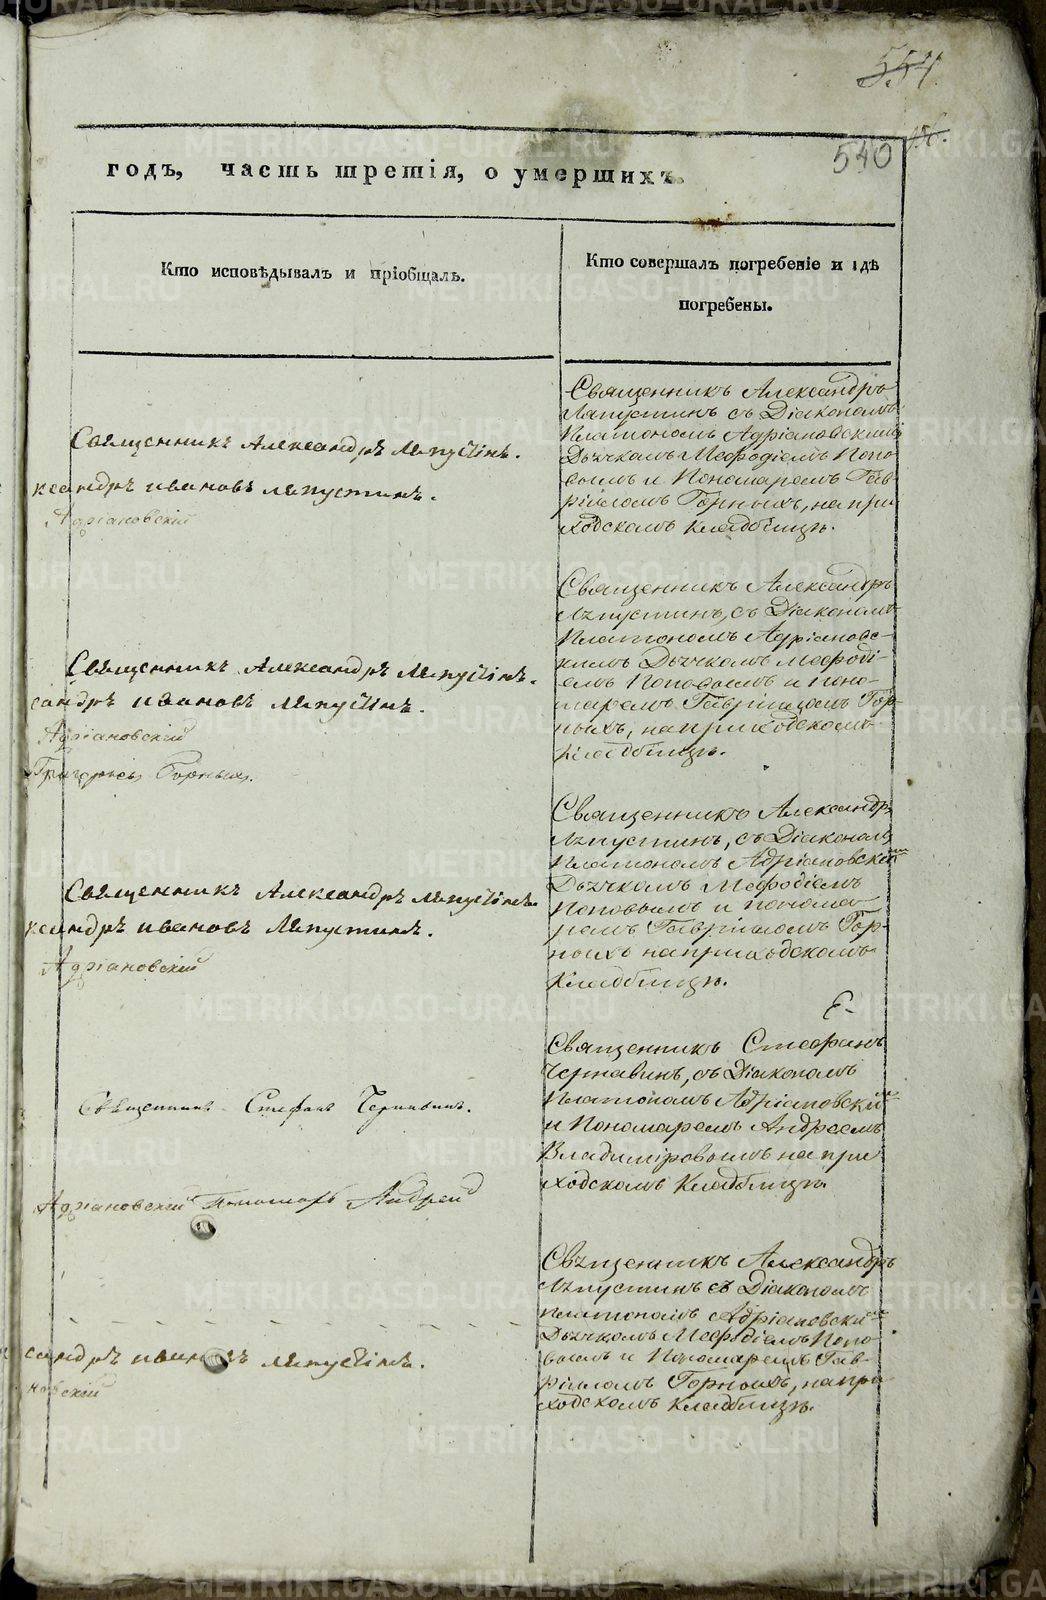 554
540
годъ, часть третія, о умершихъ.
Кто исповѣдывалъ и пріобщалъ.
Кто совершалъ погребеніе и гдѣ
погребены.
Священникъ Александръ Лапустинъ.
ксандръ ивановъ лапустинъ.
Адріановскій
Священникъ Александръ
Лапустинъ съ Діакономъ
Платономъ Адріановскимъ
Дьячкомъ Меѳодіемъ Попо-
вымъ и Пономаремъ Гав-
ріиломъ Горныхъ, на при
ходскомъ кладбищѣ.
Священникъ Александръ Лапустинъ.
сандръ ивановъ лапустинъ.
Адріановскій
Григорьевъ Горныхъ.
Священникъ Александръ
Лапустинъ, съ Діакономъ
Платономъ Адріановс-
кимъ Дьячкомъ Меѳоді-
емъ Поповымъ и Поно-
маремъ Гавріиломъ Гор-
ныхъ, на приходскомъ
кладбищѣ.
Священникъ Александръ Лапустинъ.
ксандръ ивановъ Лапустинъ.
Адріановскій
Священникъ Александръ
Лапустинъ, съ Діакономъ
Платономъ Адріановскимъ
Дьячкомъ Меѳодіемъ
Поповымъ и понома
ремъ Гавріиломъ Гор-
ныхъ на приходскомъ
кладбищѣ.
Священникъ Стефанъ Чернавинъ.
Адріановскій Пономарь Андрей
Священникъ Стефанъ
Чернавинъ, съ Діакономъ
Платономъ Адріановскимъ
и Пономаремъ Андреемъ
Владиміровымъ на при
ходскомъ Кладбищѣ
сандръ ивановъ лапустинъ.
новскій
Священникъ Александръ
Лапустинъ съ Діакономъ
платономъ Адріановскимъ
Дьячкомъ Меѳодіемъ Попо-
вымъ и Пономаремъ Гав-
ріиломъ Горныхъ, на при
ходскомъ Кладбищѣ.
METRIKI.GASO-URAL.RU